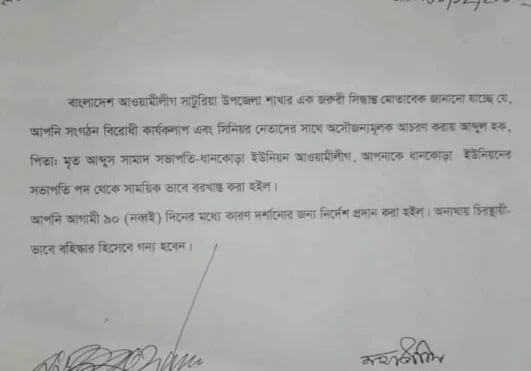 বাংলাদেশ আওয়ামীলীগ সাটুরিয়া উপজেলা শাখার এক জরুরী সিদ্ধান্ত মোতাবেক জানানো যাচ্ছে যে,
আপনি সংগঠন বিরোধী কার্যকলাপ এবং সিনিয়র নেতাদের সাথে অসৌজন্যমূলক আচরণ করায় আব্দুল হক,
পিতাঃ মৃত আব্দুস সামাদ সভাপতি-ধানকোড়া ইউনিয়ন আওয়ামীলীগ, আপনাকে ধানকোড়া ইউনিয়নের
সভাপতি পদ থেকে সাময়িক ভাবে বরখাস্ত করা হইল।
আপনি আগামী ৯০ (নব্বই) দিনের মধ্যে কারণ দর্শানোর জন্য নির্দেশ প্রদান করা হইল। অন্যথায় চিরস্থায়ী-
ভাবে বহিষ্কার হিসেবে গন্য হবেন।